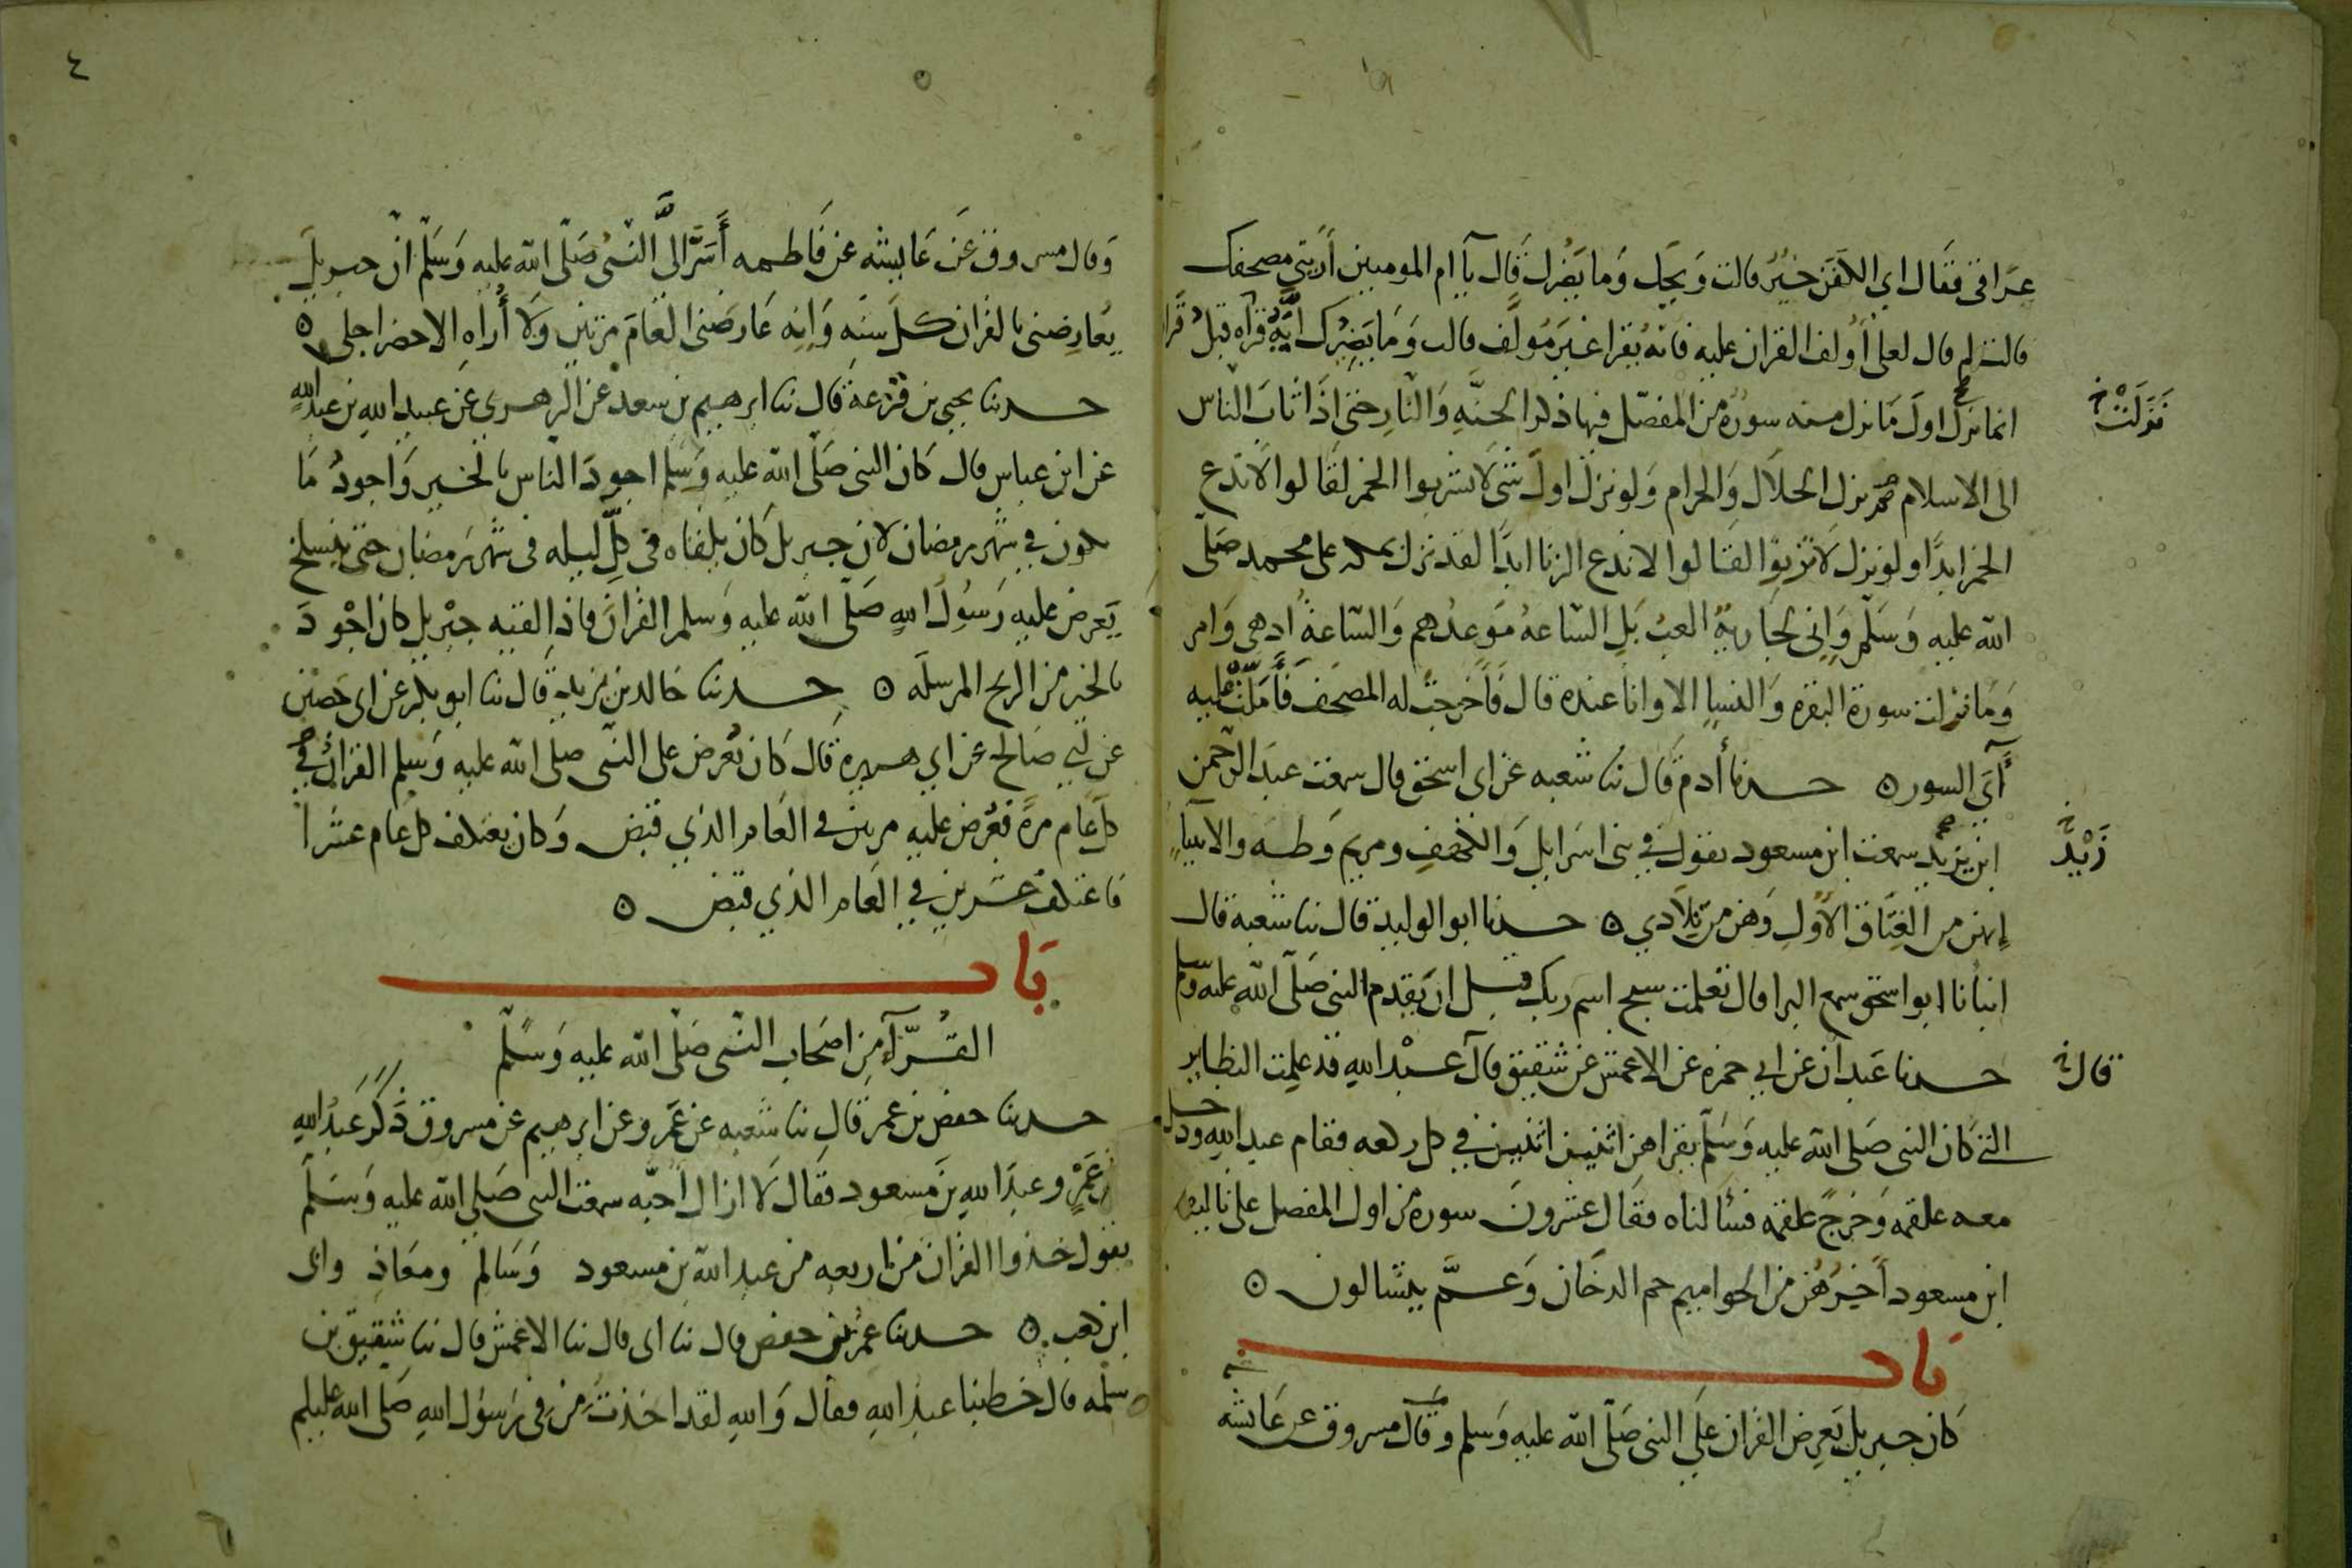 عراقي فقال اي الكفن خير قالت ويحك وما يضرك قال يا ام المومنين أريني مصحفك
قالت لم قال لعلي أولف القران عليه فانه يقرا غير مؤلف قالت وما يضرك ايه قراه قبل قرا
انما نزل اول ما نزل منه سورة من المفصل فيها ذكر الجنه والنار حتى اذا ثاب الناس
نزلت خ
الى الاسلام نزل الحلال والحرام ولو نزل اول شي لا تشربوا الخمر لقالوا لا ندع
الخمر ابدا ولو نزل لا تزنوا لقالوا لا ندع الزنا ابدا لقد نزل بمكه على محمد صلى
الله عليه وسلم واني لجارية العب بل الساعه موعدهم والساعة أدهى وامر
وما نزلت سورة البقره والنسا الا وانا عنده قال فاخرجت له المصحف فأملت عليه
آي السور ٥ حدثنا أدم قال ثنا شعبه عن ابي اسحق قال سمعت عبد الرحمن
ابن يزيد سمعت ابن مسعود يقول في بني اسرايل والكهف ومريم وطه والانبيا
زيد خ
إنهن من العتاق الاول وهن من تلادي ٥ حدثنا ابو الوليد قال ثنا شعبة قال
انبأنا ابو اسحق سمع البرا قال تعلمت سبح اسم ربك قبل ان يقدم النبي صلى الله عليه وسلم
حدثنا عبدان عن ابي حمزه عن الاعمش عن شقيق قال عبد الله قد علمت النظاير
قال خ
التي كان النبي صلى الله عليه وسلم يقراهن اثنين اثنين في كل ركعه فقام عبد الله ودخل
معه علقمه وخرج علقمه فسألناه فقال عشرون سورة من اول المفصل على تاليف
ابن مسعود أخيرهن من الحواميم حم الدخان وعم يتسالون ٥
باب
كان جبريل يعرض القران على النبي صلى الله عليه وسلم وقال مسروق عن عايشه
٤
وقال مسروق عن عايشه عن فاطمه أسر الي النبي صلى الله عليه وسلم ان جبريل
يعارضني بالقران كل سنه وانه عارضني العام مرتين ولا أراه الا حضر اجلي ٥
حدثنا يحيى بن قزعة قال ثنا ابرهيم بن سعد عن الزهري عن عبيد الله بن عبد الله
عن ابن عباس قال كان النبي صلى الله عليه وسلم اجود الناس بالخير واجود ما
يكون في شهر رمضان لان جبريل كان يلقاه في كل ليله في شهر رمضان حتى ينسلخ
يعرض عليه رسول الله صلى الله عليه وسلم القران فاذا لقيه جبريل كان اجود
بالخير من الريح المرسله ٥ حدثنا خالد بن يزيد قال ثنا ابو بكر عن ابي حصين
عن ابي صالح عن ابي هريرة قال كان يعرض على النبي صلى الله عليه وسلم القران في
كل عام مرة فعرض عليه مرتين في العام الذي قبض وكان يعتكف كل عام عشرا
فاعتكف عشرين في العام الذي قبض ٥
باب
القرآء من اصحاب النبي صلى الله عليه وسلم
حدثنا حفص بن عمر قال ثنا شعبه عن عمرو عن ابرهيم عن مسروق ذكر عبد الله
بن عمرو عبد الله بن مسعود فقال لا ازال أحبه سمعت النبي صلى الله عليه وسلم
يقول خذوا القران من اربعه من عبد الله بن مسعود وسالم ومعاذ وابي
ابن كعب ٥ حدثنا عمر بن حفص قال ثنا ابي قال ثنا الاعمش قال ثنا شقيق بن
سلمه قال خطبنا عبد الله فقال والله لقد اخذت من في رسول الله صلى الله عليه وسلم